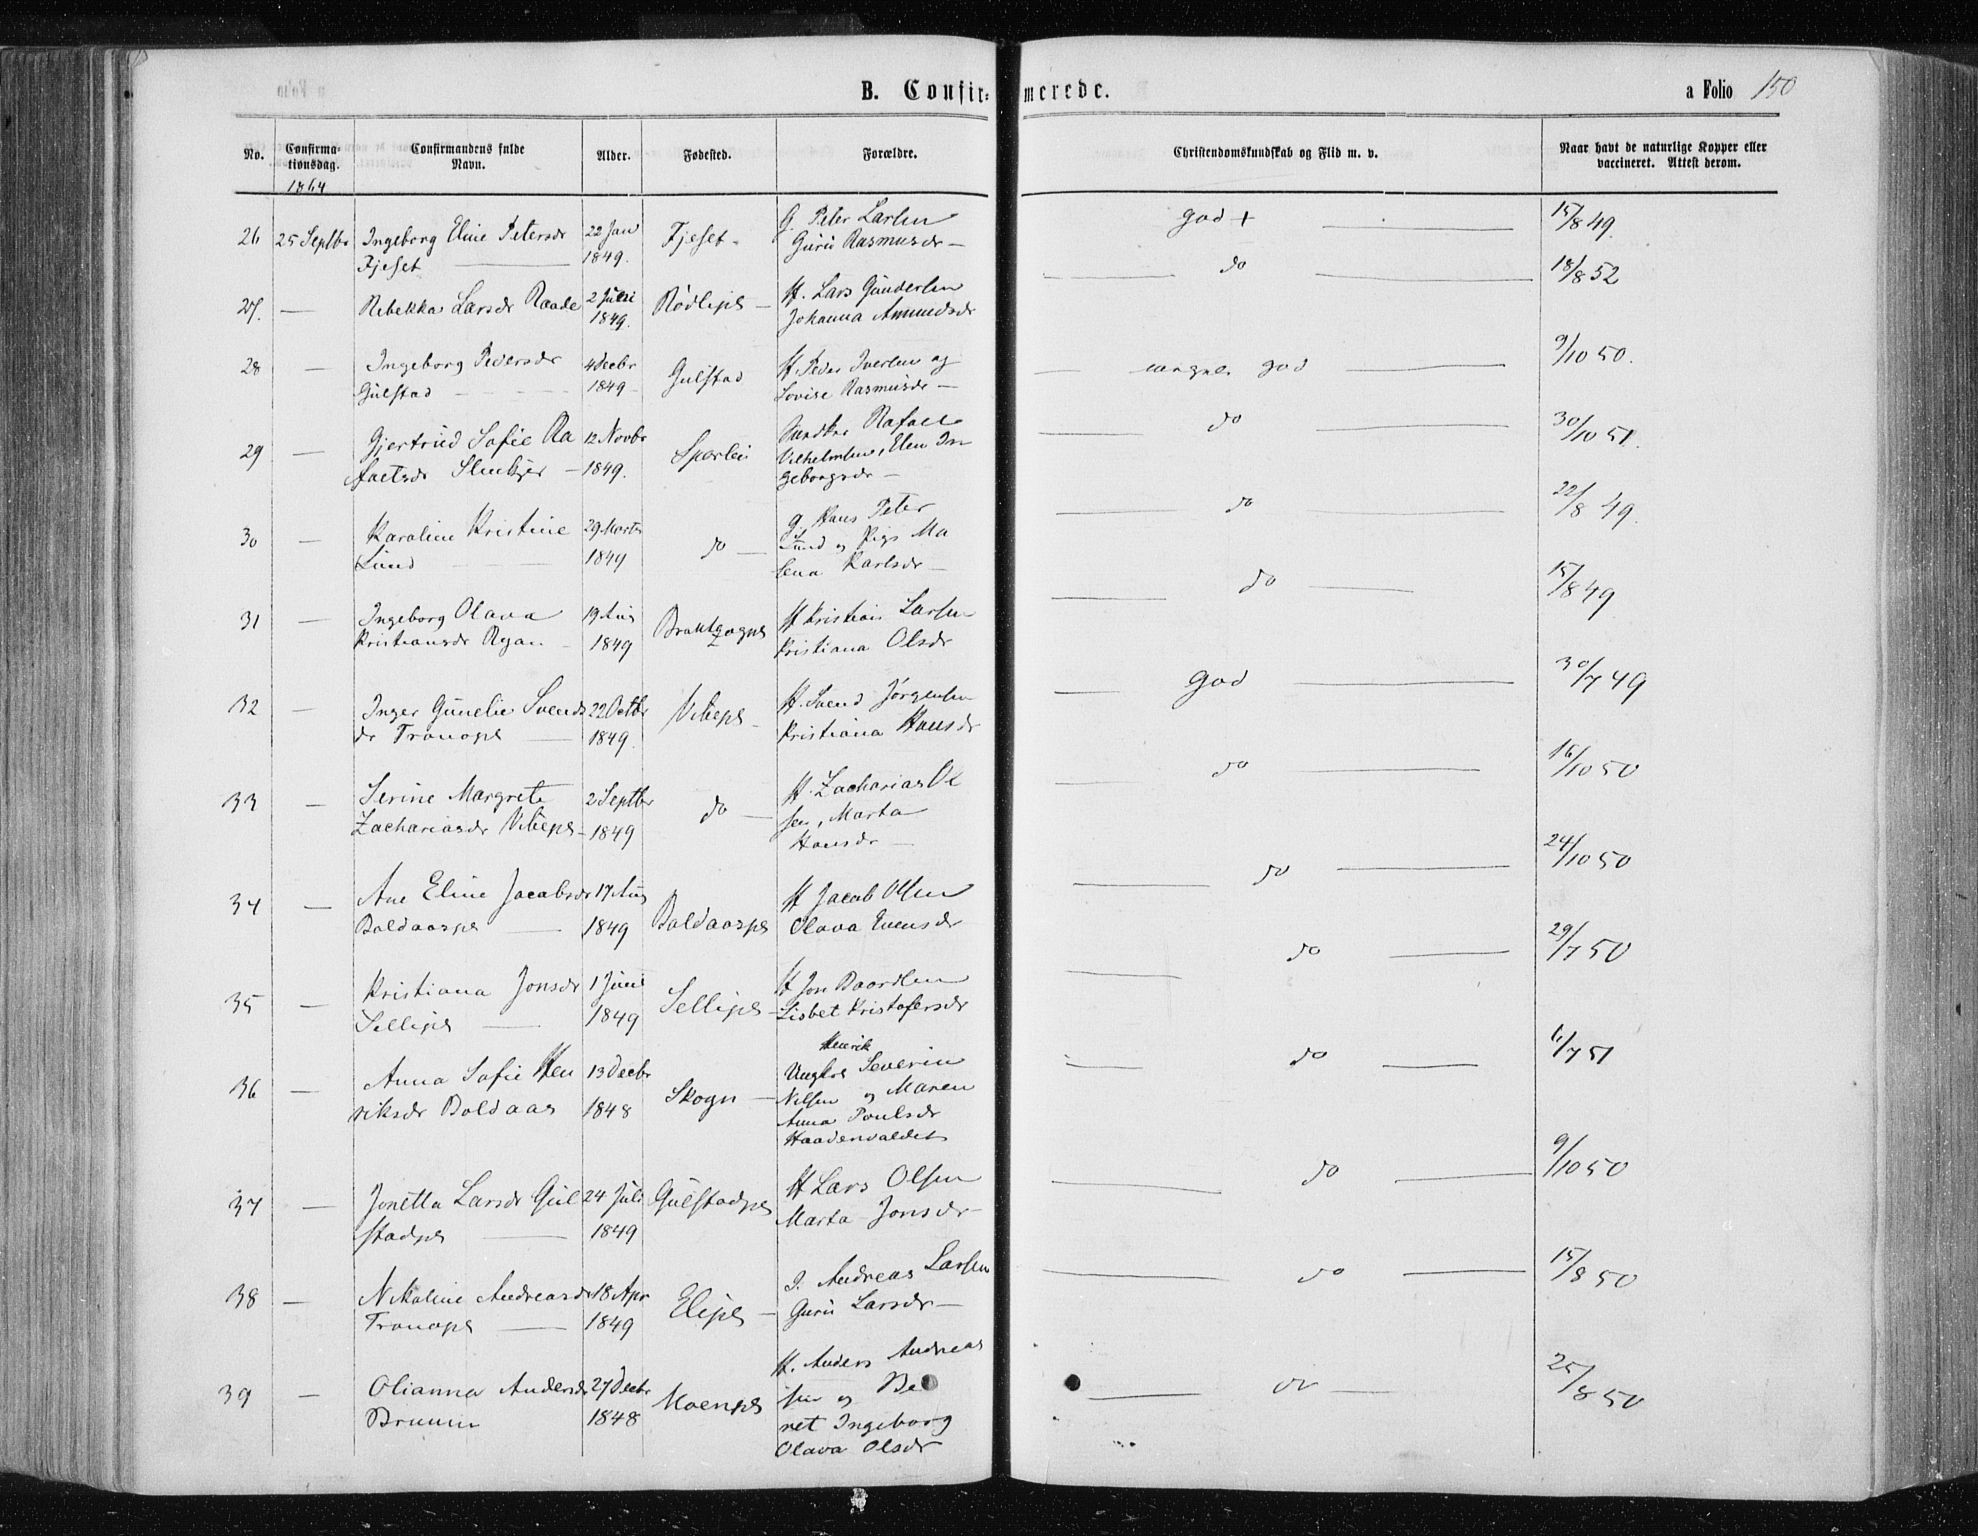 B. Confir-merede.
a Folio 150
No.
Confirma-
tionsdag.
Confirmandens fulde
Navn.
Alder.
Fødested.
Forældre.
Christendomskundskab og Flid m. v.
Naar havt de naturlige Kopper eller
vaccineret. Attest derom.
1864
26 25 Septbr Ingeborg Eline Petersdr 22 Jan Fjeset G. Peter Larsen god + 15/8 49.
Fjeset 1849. Guru Rasmusdr
27. — Rebekka Larsdr Raade 2 Juli Rødlipl H. Lars Gundersen do 18/8 52
1849. Johanna Amundsdr
28 — Ingeborg Pedersdr 4 Decbr Gulstad H. Peder Iversen og god 9/10 50.
Gulstad 1849 Lovise Rasmusdr
29 — Gjertrud Sofie Ra 12 Novbr Rafael do 30/10 51.
1849. Vilhelmsen, Elen In
geborgsdr
30 — Karoline Kristine 29 Marts do G. Hans Peter do 22/8 49.
Lund 1849 Lund og Pige Ma
lena Karlsdr
31 — Ingeborg Olava 19 Aug H Kristian Larsen do 15/8 49
Kristiansdr Ryan 1849 Kristiana Olsdr
32 — Inger Gunelie Svends 22 Octbr Vibepl H. Svend Jørgensen god 30/7 49
dr Tronopl 1849. Kristiana Hansdr
33 — Serine Margrete 2 Septbr do H. Zacharias Ol do 16/10 50
Zachariasdr Vibepl 1849 sen, Marta
Hansdr
34 — Ane Eline Jacobsdr 17 Aug Boldaaspl H Jacob Olsen do 24/10 50
Boldaaspl 1849 Olava Evensdr
35 — Kristiana Jonsdr 1 Juni Sellipl H Jon Baardsen do 29/7 50
Sellipl 1849 Lisbet Kristofersdr
Henrik
36 — Anna Sofie Hen 13 Decbr Skogn Ungkrl Severin do 6/7 51
riksdr Boldaas 1848 Nilsen og Maren
Anna Poulsdr
37 — Jonetta Larsdr Gul 24 Juli Gulstadpl H Lars Olsen do 9/10 50
stadpl 1849 Marta Jonsdr
38 — Nikoline Andreasdr 18 Apr Elipl I. Andreas Larsen do 15/8 50
Tronopl 1849 Guru Larsdr
39 — Olianna Andersdr 27 Decbr Moenpl H. Anders Andreas do 25/8 50
Bruum 1848 sen og Be
ret Ingeborg
Olava Olsdr